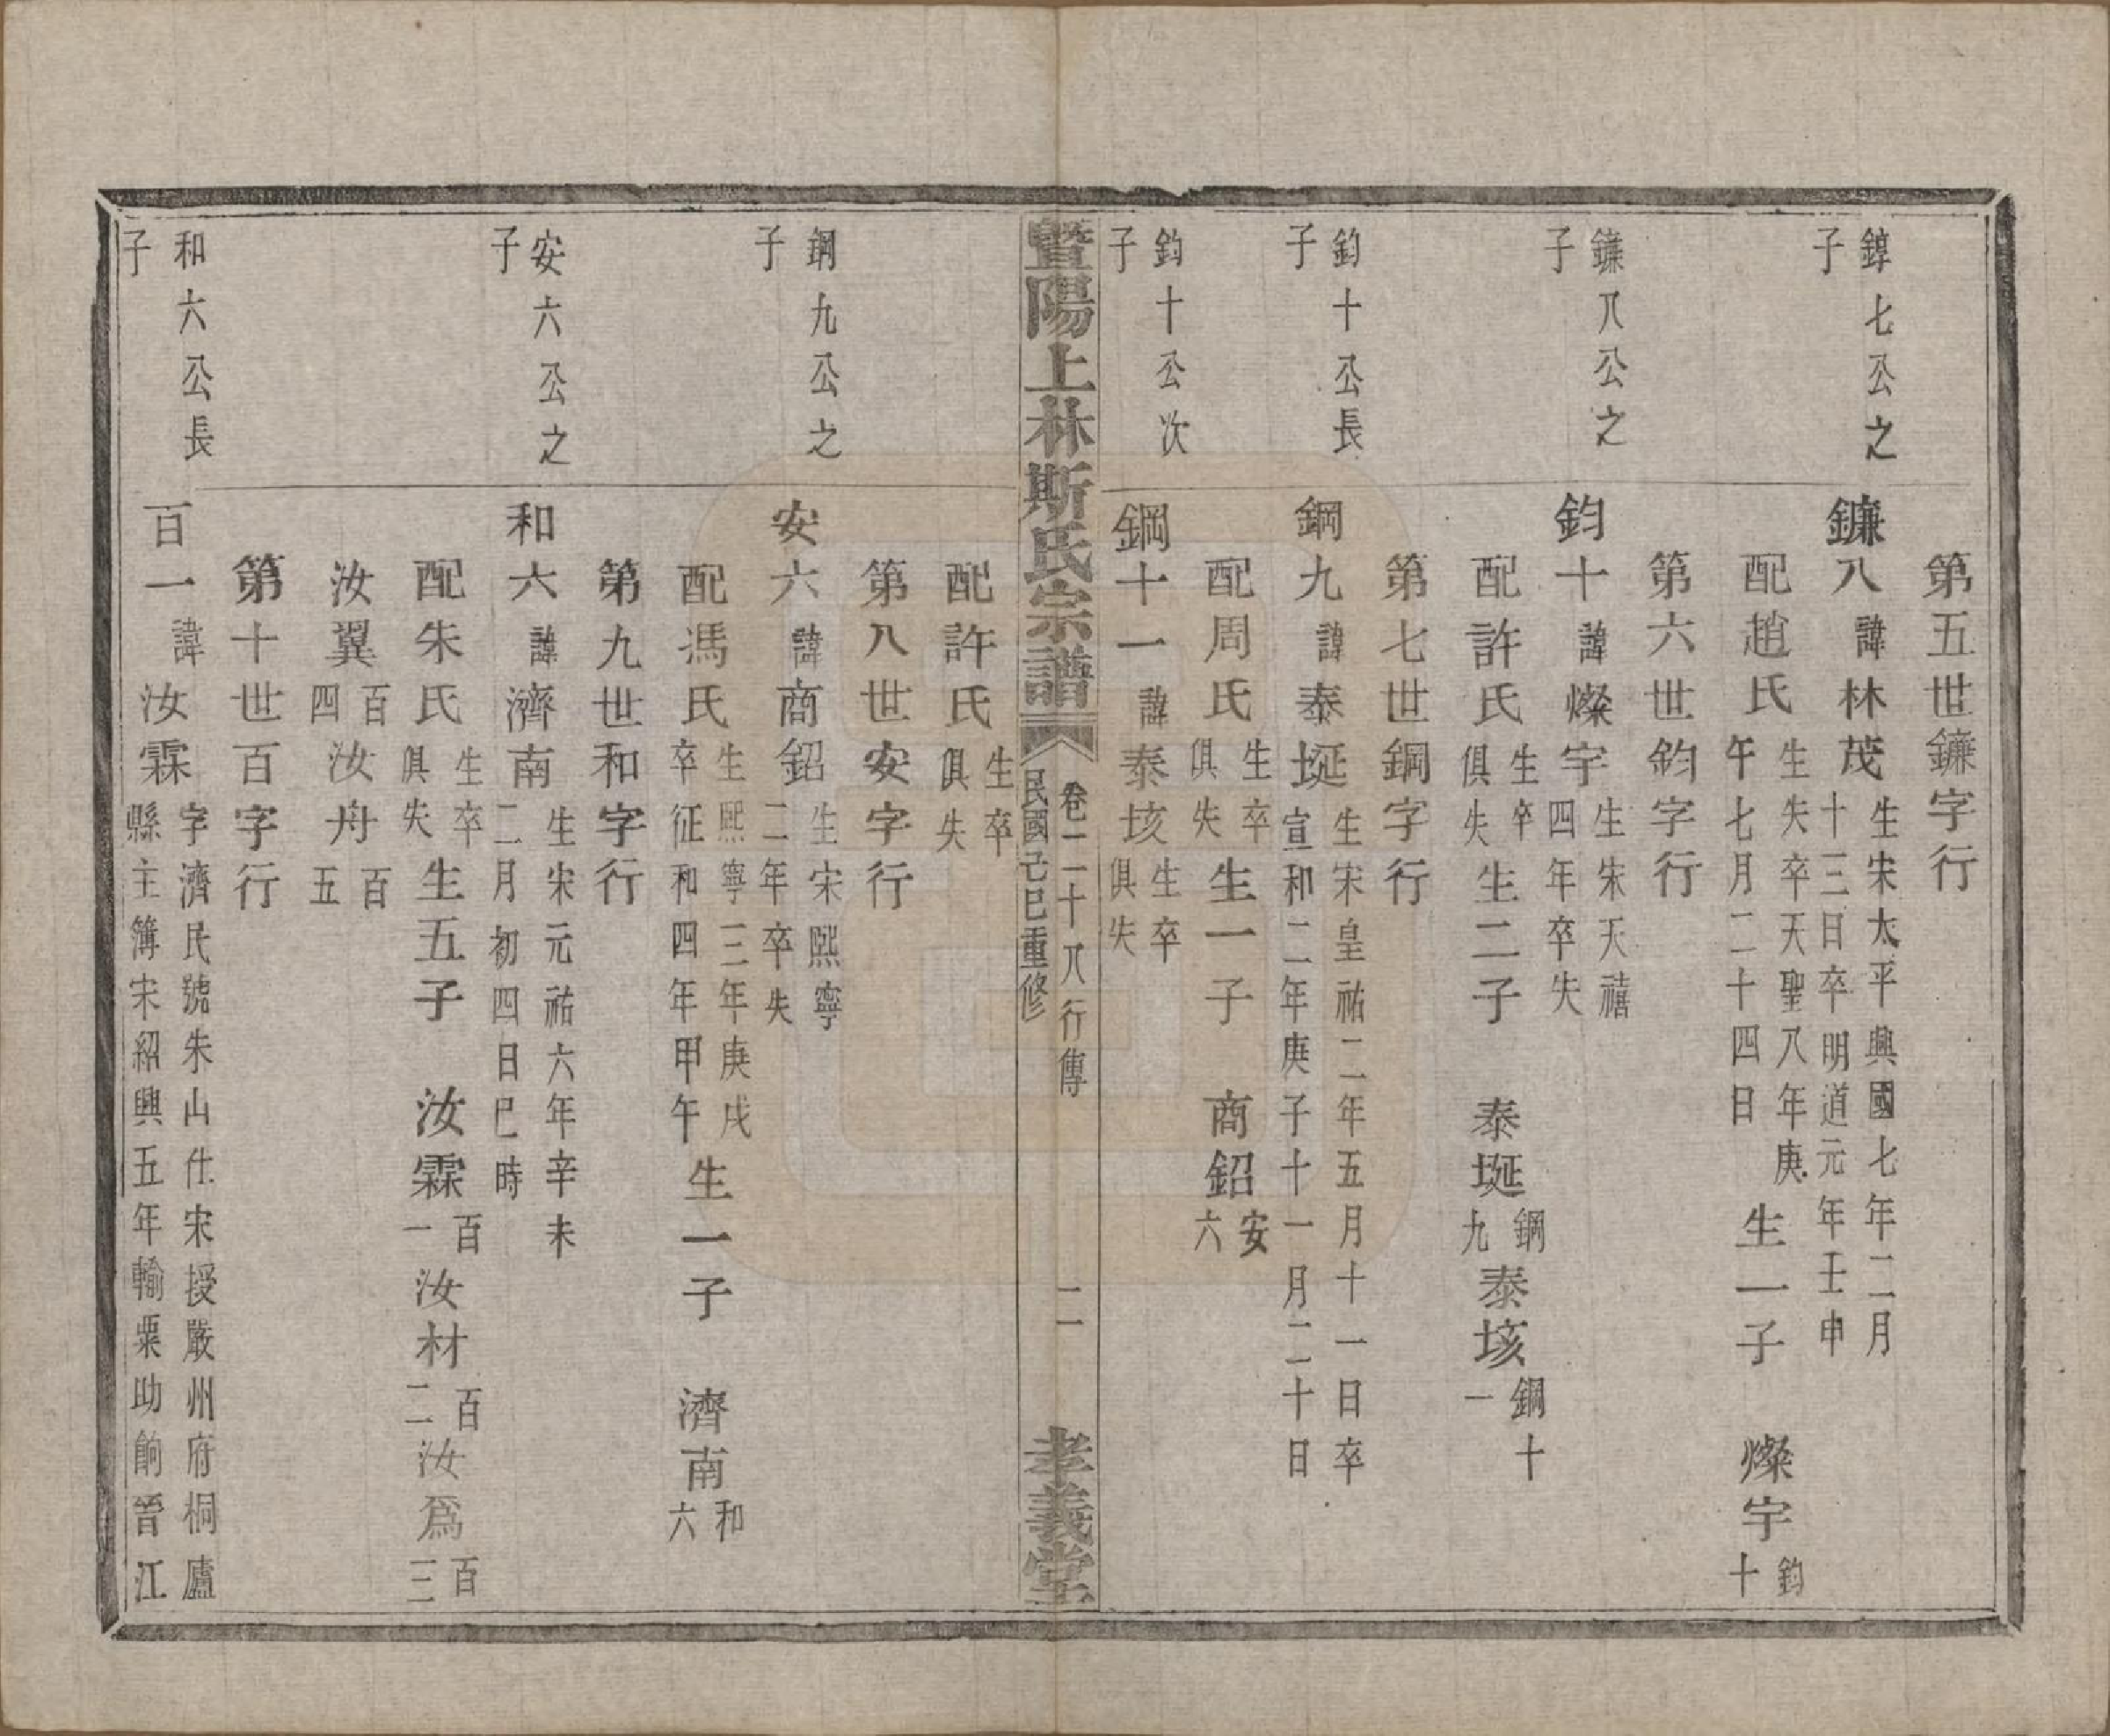 第五世鐮字行
錞七公之子
鐮八諱林茂生宋太平興國七年二月十三日卒明道元年壬申
配趙氏生失卒天聖八年庚午七月二十四日生一子　燦宇鈞十
第六世鈞字行
鐮八公之子
鈞十諱燦宇生朱天禧四年卒失
配許氏生卒俱失生二子　泰埏鋼九泰垓鋼十一
第七世鋼字行
鈞十公長子
鋼九諱泰埏生宋皇祐二年五月十一日卒宣和二年庚子十一月二十日
配周氏生卒俱失生一子　商鉊安六
鈞十公次子
鋼十一諱泰垓生卒俱失
暨陽上林斯氏宗譜
卷二十八行傳
民國己巳重修
二
孝義堂
配許氏生卒俱失
第八世安字行
鋼九公之子
安六諱商鉊生宋熙寧二年卒失
配馮氏生熙寧三年庚戌卒征和四年甲午生一子　濟南和六
第九世和字行
安六公之子
和六諱濟南生宋元祐六年辛未二月初四日巳時
配朱氏生卒俱失生五子　汝霖百一汝材百二汝爲百三
汝翼百四汝舟百五
第十世百字行
和六公長子
百一諱汝霖字濟民號朱山仕宋授嚴州府桐廬縣主簿宋紹興五年輸粟助餉晉江